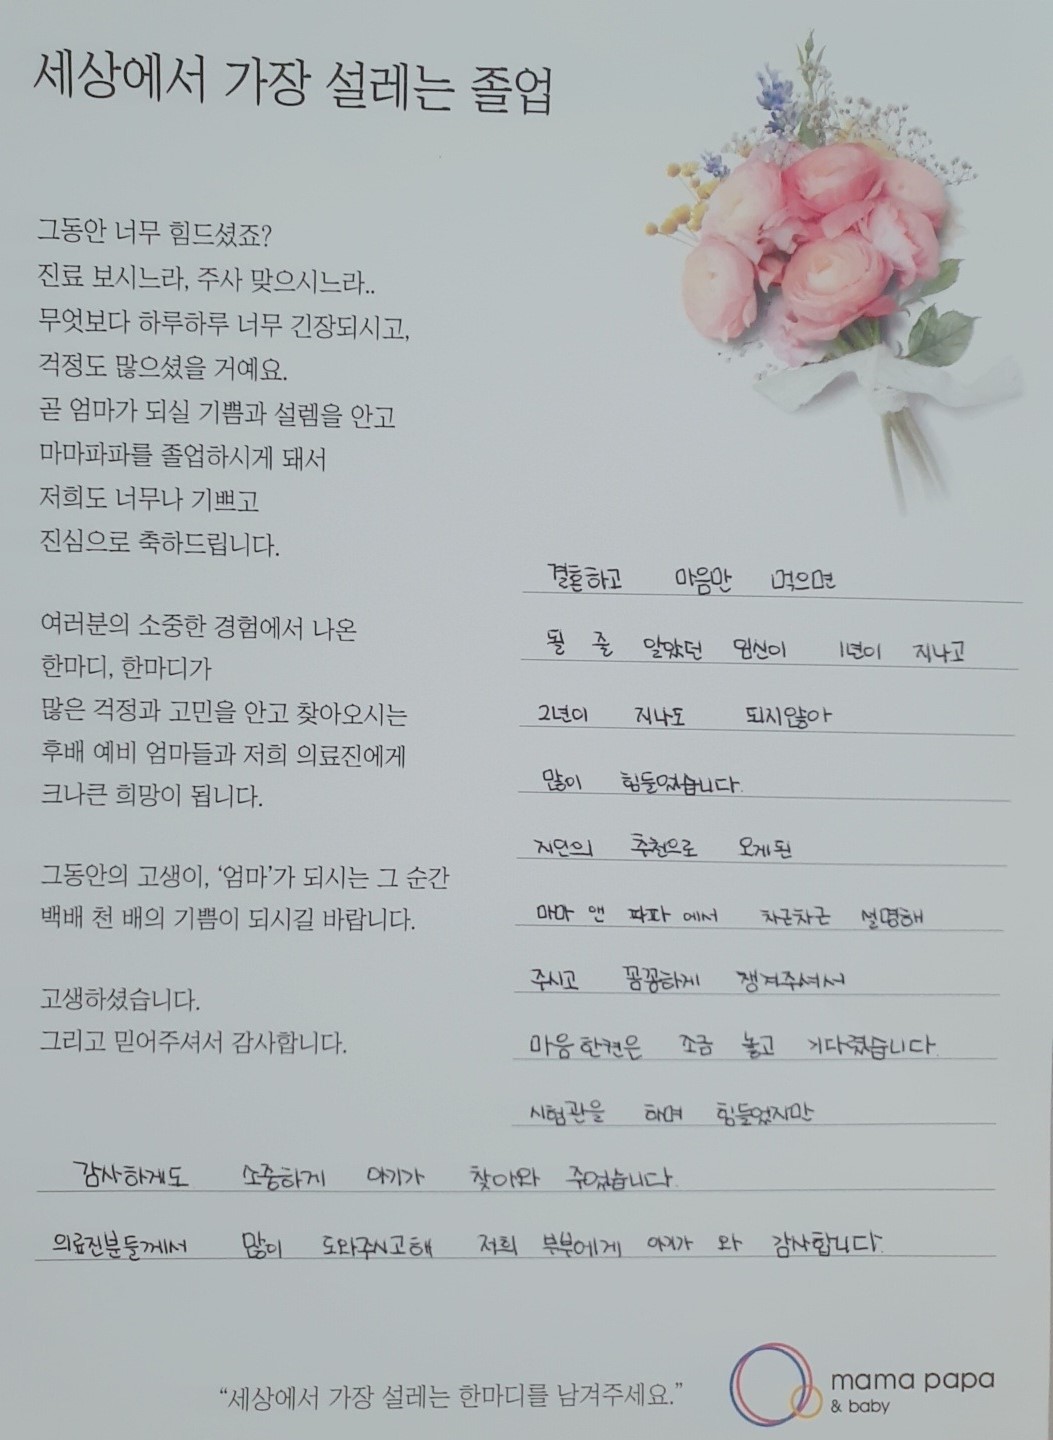 세상에서 가장 설레는 졸업
그동안 너무 힘드셨죠?
진료 보시느라, 주사 맞으시느라..
무엇보다 하루하루 너무 긴장되시고,
걱정도 많으셨을 거예요.
곧 엄마가 되실 기쁨과 설렘을 안고
마마파파를 졸업하시게 돼서
저희도 너무나 기쁘고
진심으로 축하드립니다.
여러분의 소중한 경험에서 나온
한마디, 한마디가
많은 걱정과 고민을 안고 찾아오시는
후배 예비 엄마들과 저희 의료진에게
크나큰 희망이 됩니다.
그동안의 고생이, ‘엄마’가 되시는 그 순간
백배 천 배의 기쁨이 되시길 바랍니다.
고생하셨습니다.
그리고 믿어주셔서 감사합니다.
결혼하고 마음만 먹으면
될 줄 알았던 임신이 1년이 지나고
2년이 지나도 되지않아
많이 힘들었습니다.
지인의 추천으로 오게된
마마 앤 파파 에서 차근차근 설명해
주시고 꼼꼼하게 챙겨주셔서
마음 한켠은 조금 놓고 기다렸습니다.
시험관을 하며 힘들었지만
감사하게도 소중하게 아기가 찾아와 주었습니다.
의료진분들께서 많이 도와주시고해 저희 부부에게 아기가 와 감사합니다.
“세상에서 가장 설레는 한마디를 남겨주세요.”
mama papa
& baby